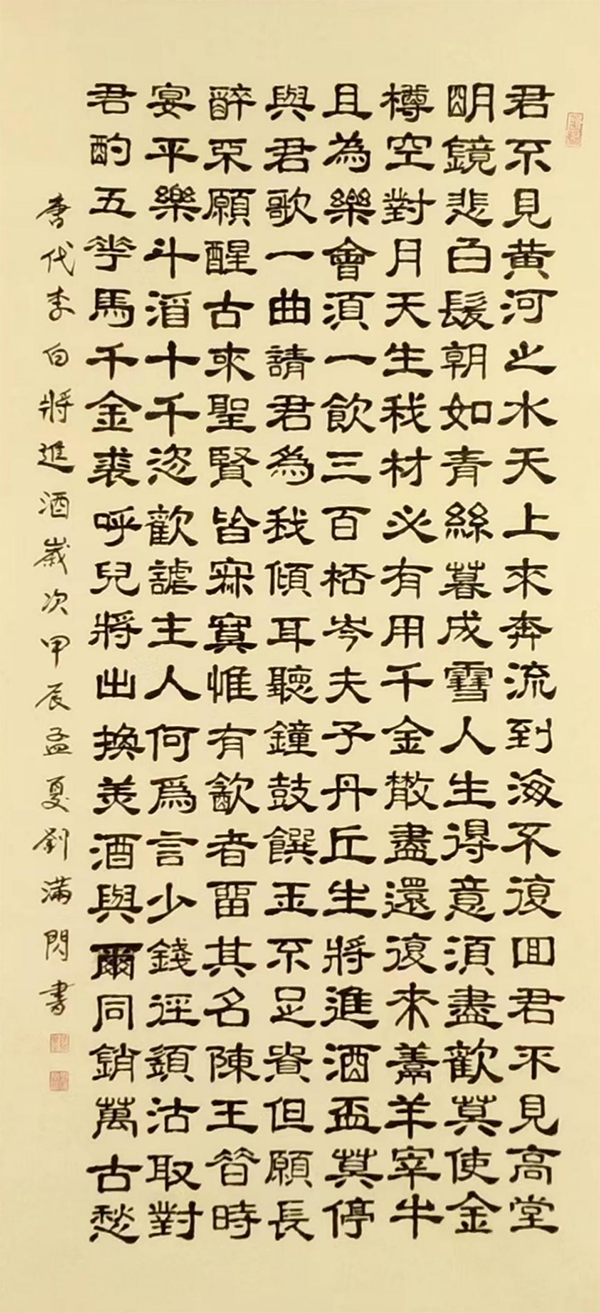 君不見黄河之水天上來奔流到海不復回君不見高堂
明鏡悲白髮朝如青絲暮成雪人生得意須盡歡莫使金
樽空對月天生我材必有用千金散盡還復來羹羊宰牛
且為樂會須一飲三百桮岑夫子丹丘生將進酒盃莫停
與君歌一曲請君為我傾耳聽鐘鼓饌玉不足貴但願長
醉不願醒古來聖賢皆寂寞惟有㱃者留其名陳王昔時
宴平樂斗酒十千恣歡謔主人何爲言少錢徑須沽取對
君酌五花馬千金裘呼兒將出換美酒與爾同銷萬古愁
唐代李白將進酒歲次甲辰孟夏劉滿閃書